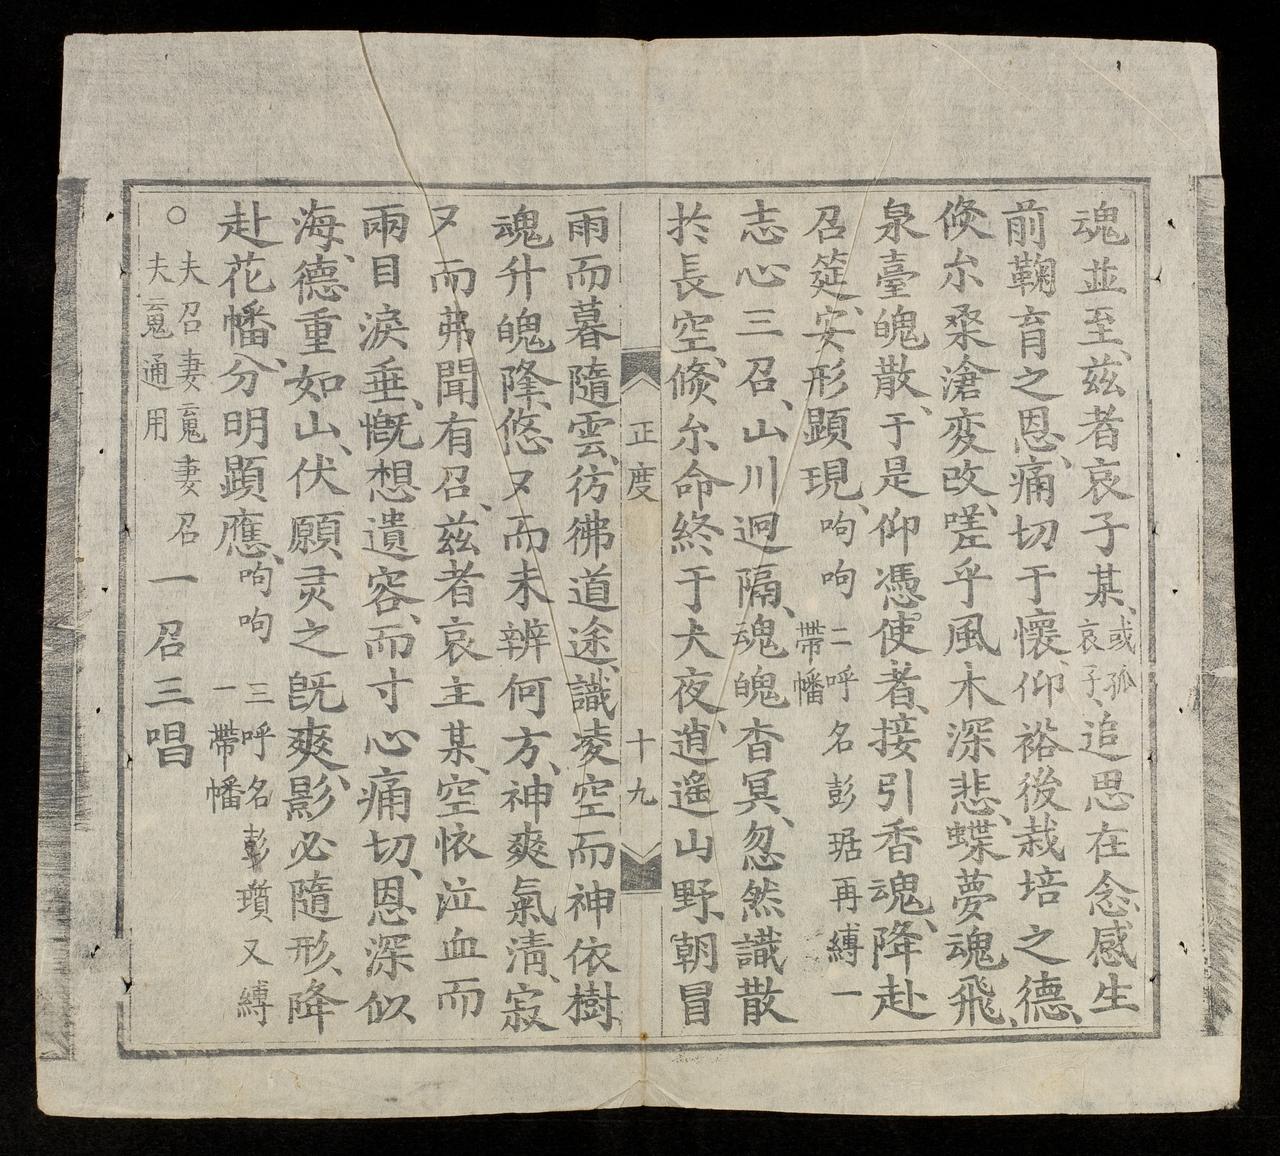 魂並至、茲者哀子某、或孤哀子、追思在念、感生
前鞠育之恩、痛切于懷、仰裕後栽培之德、
倏尔桑滄変改、嗟乎風木深悲、蝶夢魂飛、
泉臺魄散、于是仰憑使者、接引香魂、降赴
召筵、安形顕現、呴呴二呼名彭琚再縛一帶幡
志心三召、山川迥隔、魂魄杳冥、忽然識散
扵長空、倐尓命終于大夜、逍遙山野、朝冒
正度 十九
雨而暮隨雲、彷彿道途、識凌空而神依樹
魂升魄降、悠〻而未辨何方、神爽氣清、寂
〻而弗聞有召、茲者哀主某、空怀泣血而
兩目淚垂、慨想遺容、而寸心痛切、恩深似
海、德重如山、伏願灵之旣爽、影必隨形、降
赴花幡、分明顕應、呴呴三呼名彭瓆又縛一帶幡
○夫召妻䰟妻召夫䰟通用 一召三唱